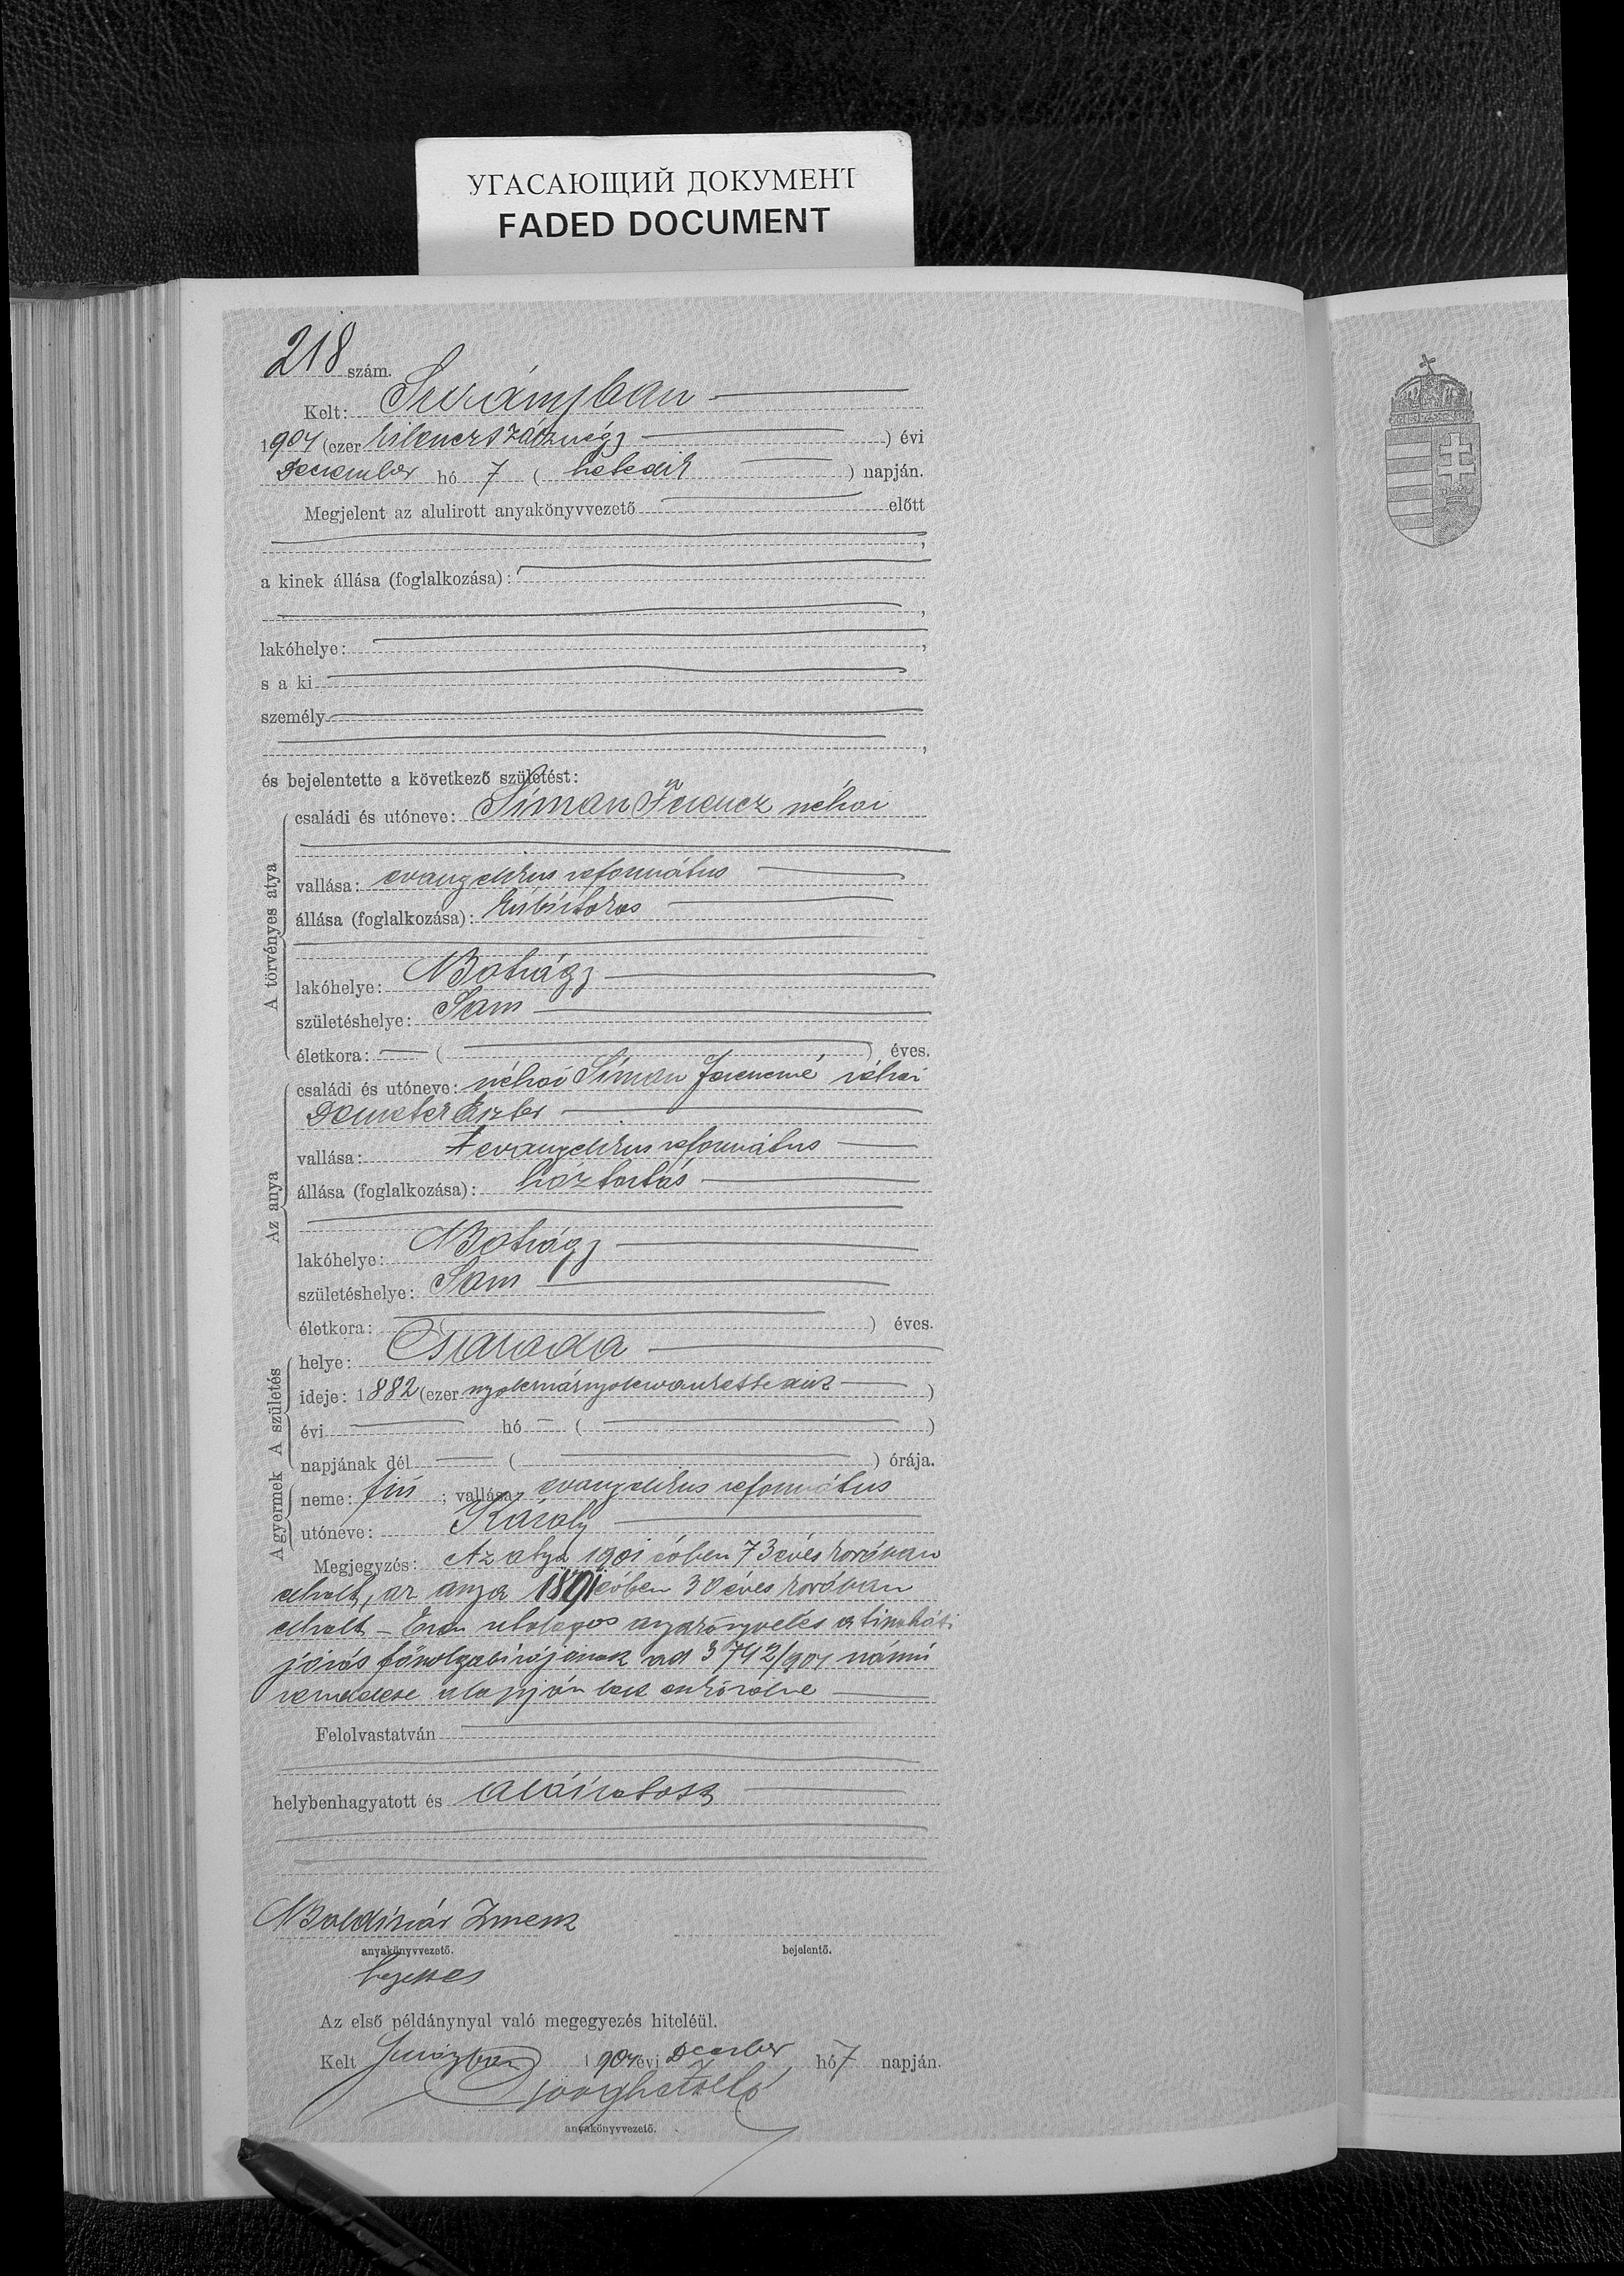 УГАСАЮЩИЙ ДОКУМЕНТ
FADED DOCUMENT
218 szám.
Kelt: Surányban
1904 (ezer kilenczszáznégy ) évi
December hó 7 ( hetedik ) napján.
Megjelent az alulirott anyakönyvvezető előtt
,
a kinek állása (foglalkozása):
,
lakóhelye: ,
s a ki
személy
,
és bejelentette a következő születést:
A törvényes atya
családi és utóneve: Simon Ferencz néhai
vallása: evangelikus református
állása (foglalkozása):
lakóhelye: Botrágy
születéshelye: Som
életkora: ( ) éves.
Az anya
családi és utóneve: néhai Simon Ferencné néhai
Demeter Eszter
vallása: evangelikus református
állása (foglalkozása): háztartás
lakóhelye: Botrágy
születéshelye: Som
életkora: ) éves.
A születés
helye: Csaroda
ideje: 1882 (ezer nyolcszáznyolcvankettedik )
évi hó ( )
napjának dél ( ) órája.
A gyermek
neme: fiú ; vallása: evangelikus református
utóneve: Károly
Megjegyzés: Az atya 1901 évben 73 éves korában
elhalt, az anya 1891 évben 30 éves korában
elhalt – Ezen utólagos anyakönyvelés a tiszaháti
járás főszolgabirójának ad 3742/904 számú
rendelete alapján lett eszközölve
Felolvastatván
helybenhagyatott és aláiratott
Boldizsár Imre
anyakönyvvezető. bejelentő.
helyettes
Az első példánynyal való megegyezés hiteléül.
Kelt 1904 évi December hó 7 napján.
anyakönyvvezető.